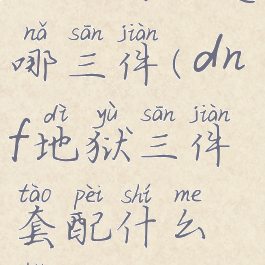 nǎ sān jiàn
哪三件(dn
dì yù sān jiàn
f地狱三件
tào pèi shí me
套配什么